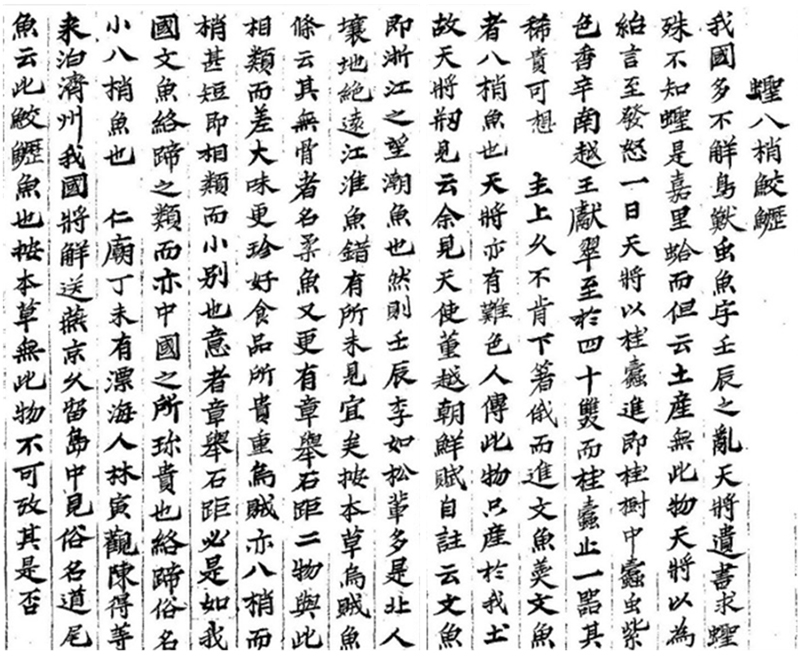 蟶八梢鮫鱺
我國多不解鳥獸虫魚字壬辰之亂天將遺書求蟶
殊不知蟶是嘉里蛤而但云土産無此物天將以為
紿言至發怒一日天將以桂蠹進即桂樹中蠹虫紫
色香辛南越王獻翠至於四十雙而桂蠹止一器其
稀貴可想　主上久不肯下箸俄而進文魚羹文魚
者八梢魚也天將亦有難色人傳此物只産於我土
故天將刱見云余見天使董越朝鮮賦自註云文魚
即浙江之望潮魚也然則壬辰李如松輩多是北人
壤地絶遠江淮魚錯有所未見宜矣按本草烏賊魚
條云其無骨者名柔魚又更有章舉石距二物與此
相類而差大味更珍好食品所貴重烏賊亦八梢而
梢甚短即相類而小別也意者章舉石距必是如我
國文魚絡蹄之類而亦中國之所珎貴也絡蹄俗名
小八梢魚也　仁廟丁未有漂海人林寅觀陳得等
来泊濟州我國將解送燕京久留島中見俗名道尾
魚云此鮫鱺魚也按本草無此物不可攷其是否